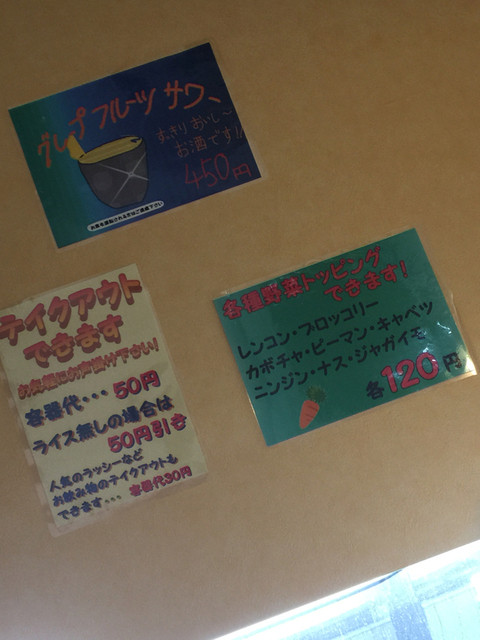 グレープフルーツサワー
すっきりおいし〜
お酒です!!
450円
お車を運転される方はご遠慮下さい
各種野菜トッピング
できます!
レンコン・ブロッコリー
カボチャ・ピーマン・キャベツ
ニンジン・ナス・ジャガイモ
各120円
テイクアウト
できます
お気軽にお声掛け下さい!
容器代・・・50円
ライス無しの場合は
50円引き
人気のラッシーなど
お飲み物のテイクアウトも
できます・・・容器代30円